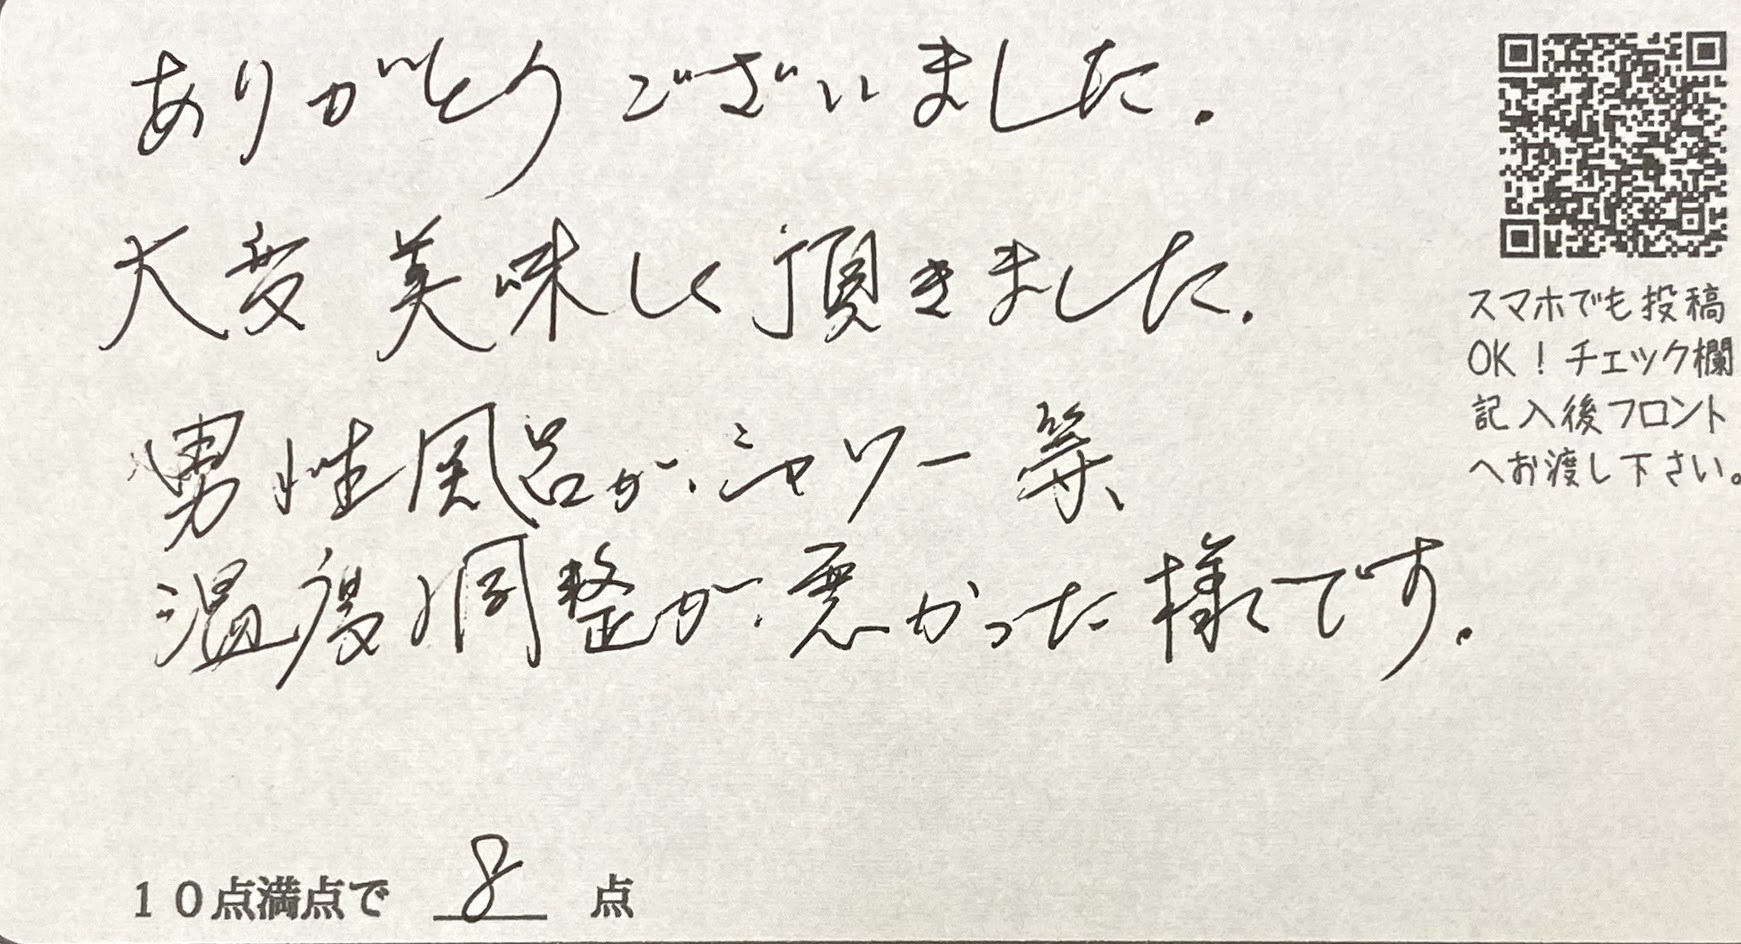 ありがとうございました.
大変美味しく頂きました.
男性風呂が、シャワー等、
温度調整が、悪かった様です.
10点満点で 8 点
スマホでも投稿
OK！チェック欄
記入後フロント
へお渡し下さい。